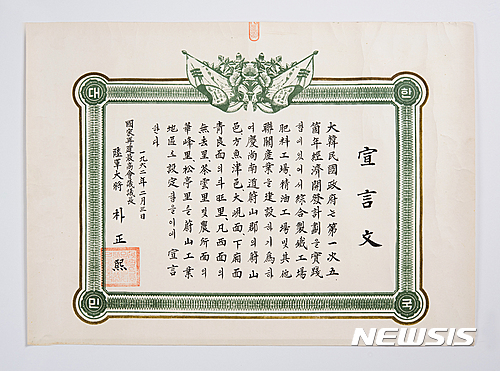 대 한
宣言文
大韓民國政府는 第一次五
箇年經濟開發計劃을實踐
함에있어서 綜合製鐵工場
肥料工場 精油工場및其他
聯關産業을建設하기爲하
여慶尙南道蔚山郡의蔚山
邑方魚津邑大峴面下廂面
靑良面의斗旺里凡西面의
無去里茶雲里및農所面의
華峰里松亭里를蔚山工業
地區로設定함을이에宣言
한다
一九六二年二月三日
國家再建最高會議議長
陸軍大將 朴正熙
민 국
NEWSIS